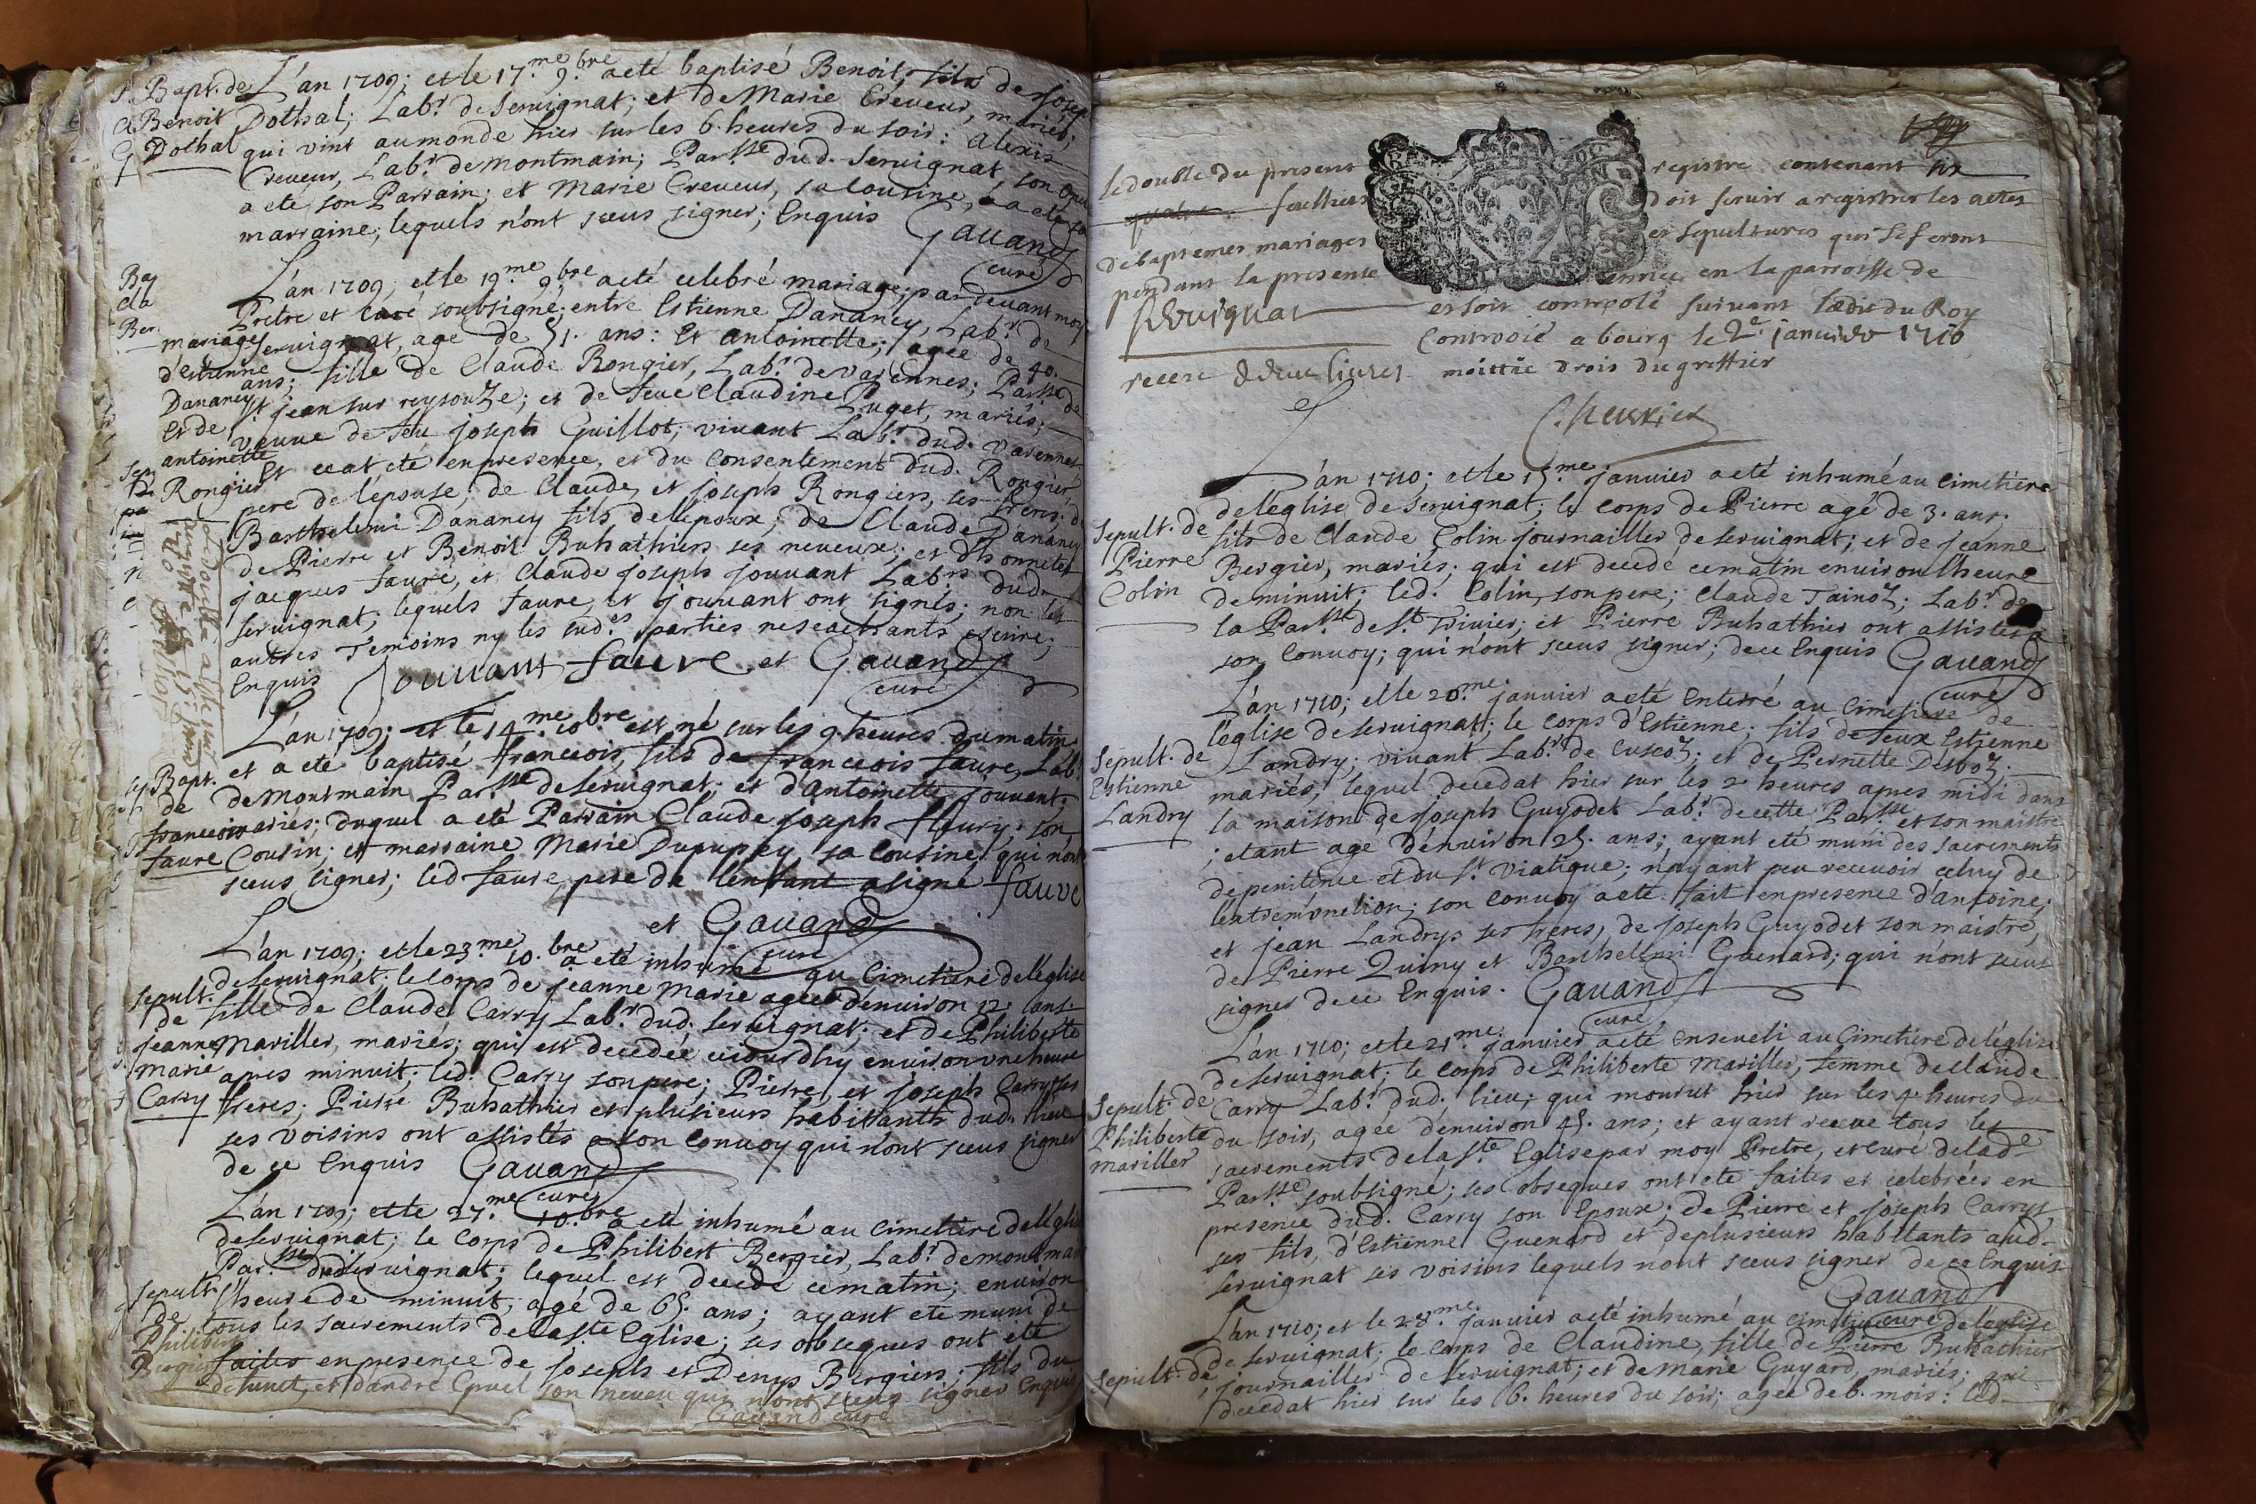 Bapt. de
Benoit
Dothal
L'an 1709; et le 17.me 9.bre a eté baptisé Benoit, fils de Josep
Dothal; Lab.r de Seruignat; et de Marie Creueur, mariés;
qui vint au monde hier sur les 6. heures du soir: Alexis
Creueur, Lab.r de Montmain; Par.sse dud. Seruignat, son
a eté son Parrain; et Marie Creueur, sa Cousine, a eté sa
marraine; lequels n'ont sceus signer; Enquis Gauand
curé
mariage
d'estienne
Dananey
et de
antoinette
Rongier
L'an 1709; et le 19.me 9.bre a eté celebré mariage; par deuant moy
Pretre et curé soubsigné; entre Estienne Dananey, Lab.r de
Seruignat, age de 51. ans: Et Antoinette; agée de 40.
ans; fille de Claude Rongier, Lab.r de Varennes; Par.sse de
S.t jean sur reysouze; et de feue Claudine Puget, mariés;
veuue de feu joseph Guillot; viuant Lab.r dud. Varennes
Et ce at eté en presence, et du Consentement dud. Rongier,
pere de l'épouse; de Claude, et joseph Rongiers, ses freres; de
Barthelemi Dananey fils de l'epoux; de Claude Dananey
de Pierre et Benoit Buhathiers ses neueux; et d'honnetes
jacques faure, et Claude joseph jouuant Lab.rs dud.
seruignat; lequels faure, et jouuant ont signés; non les
autres Temoins ny les sud.es parties ne scachants escrire;
Enquis Jouuant faure et Gauand
curé
Bapt.
de
francois
faure
L'an 1709; et le 14.me 10.bre est né sur les 9 heures du matin
et a eté baptisé francois, fils de francois faure, Lab.r
de Montmain Par.sse de Seruignat; et d'Antoinette jouuant
mariés; duquel a eté Parrain Claude joseph fleury, son
Cousin; et marraine Marie Dupupey, sa Cousine qui n'ont
sceus signer; led faure, pere de l'enfant a signé faure
et Gauand
curé
sepult.
de
jeanne
marie
Carry
L'an 1709; et le 23.me 10.bre a eté inhumé au Cimetiere de l'eglise
de Seruignat; le corps de jeanne Marie agée d'enuiron 12. ans
fille de Claude Carry Lab.r dud. seruignat; et de Philiberte
Mariller, mariés; qui est decedée ajourdhy enuiron vne heure
apres minuit; led. Carry son pere; Pierre, et joseph Carry ses
freres; Pierre Buhathier et plusieurs habitants dud. lieu
ses voisins ont assistés a son Conuoy qui n'ont sceus signer
de ce Enquis Gauand
curé
sepult.
de
Philibert
Bergier
L'an 1709; et le 27.me 10.bre a eté inhumé au Cimetiere de l'eglise
de Seruignat; le Corps de Philibert Bergier, Lab.r de Montmain
Par.sse de Seruignat; lequel est decedé ce matin; enuiron
l'heure de minuit, agé de 65. ans; ayant eté muni de
tous les sacrements de la s.te Eglise; ses obseques ont eté
faites en presence de joseph et Denys Bergiers, fils du
defunct, et d'andré son neueu qui n'ont sceus signer Enquis
Gauand curé
le double du present registre contenant six
quatre feulliets doit seruir a registrer les actes
de baptemes mariages et sepultures qui se feront
pendant la presente année en la parroisse de
Seruignat et soit controolé suiuant l'edit du Roy
Controolé a bourg le 2.e januier 1710
receu deux liures moittié drois du greffier
Sepult. de
Pierre
Colin
L'an 1710; et le 15.me januier a eté inhumé au Cimetiere
de l'eglise de Seruignat; le corps de Pierre agé de 3. ans;
fils de Claude Colin journailler de seruignat; et de jeanne
Bergier, mariés; qui est decedé ce matin enuiron l'heure
de minuit; led. Colin, son pere; Claude Tainoz; Lab.r de
la Par.sse de S.t Triuier; et Pierre Buhathier ont assistés a
son Conuoy; qui n'ont sceus signer; de ce Enquis Gauand
curé
Sepult. de
Estienne
Landry
L'an 1710; et le 20.me januier a eté enterré au Cimetiere de
l'eglise de Seruignat; le Corps d'Estienne; fils de feux Estienne
Landry; viuant Lab.r de Cuscoz; et de Pernette Desboz;
mariés; lequel decedat hier sur les 2 heures apres midi dans
la maison de joseph Guyodet Lab.r de cette Par.sse et son maistre
; etant age d'enuiron 25. ans; ayant eté muni des sacrements
de penitence et du s.t Viatique; n'ayant peu receuoir celuy de
l'extremonction; son Conuoy a eté fait en presence d'antoine;
et jean Landrys ses freres, de joseph Guyodet son maistre,
de Pierre Quiny et Barthelemi Guenard; qui n'ont sceus
signer de ce Enquis. Gauand
curé
Sepult. de
Philiberte
mariller
L'an 1710; et le 21.me januier a eté enseueli au Cimetiere de l'eglise
de Seruignat; le Corps de Philiberte Mariller, femme de Claude
Carry Lab.r dud. lieu; qui mourut hier sur les 4. heures du
du soir, agée d'enuiron 45. ans; et ayant receue tous les
sacrements de la s.te Eglise par moy Pretre, et curé de lad.e
Par.sse soubsigné; ses obseques ont eté faites et celebrées en
presence dud. Carry son Epoux; de Pierre et joseph Carrys
ses fils, d'Estienne Guenard et de plusieurs habitants aud.
seruignat ses voisins lequels nont sceus signer de ce Enquis
Gauand
curé
Sepult. de
L'an 1710; et le 28.me januier a eté inhumé au cimetiere de l'eglise
de Seruignat; le Corps de Claudine, fille de Pierre Buhathier
journailler de Seruignat; et de Marie Guyard, mariés; qui
decedat hier sur les 6. heures du soir; agée de 6. mois: led.